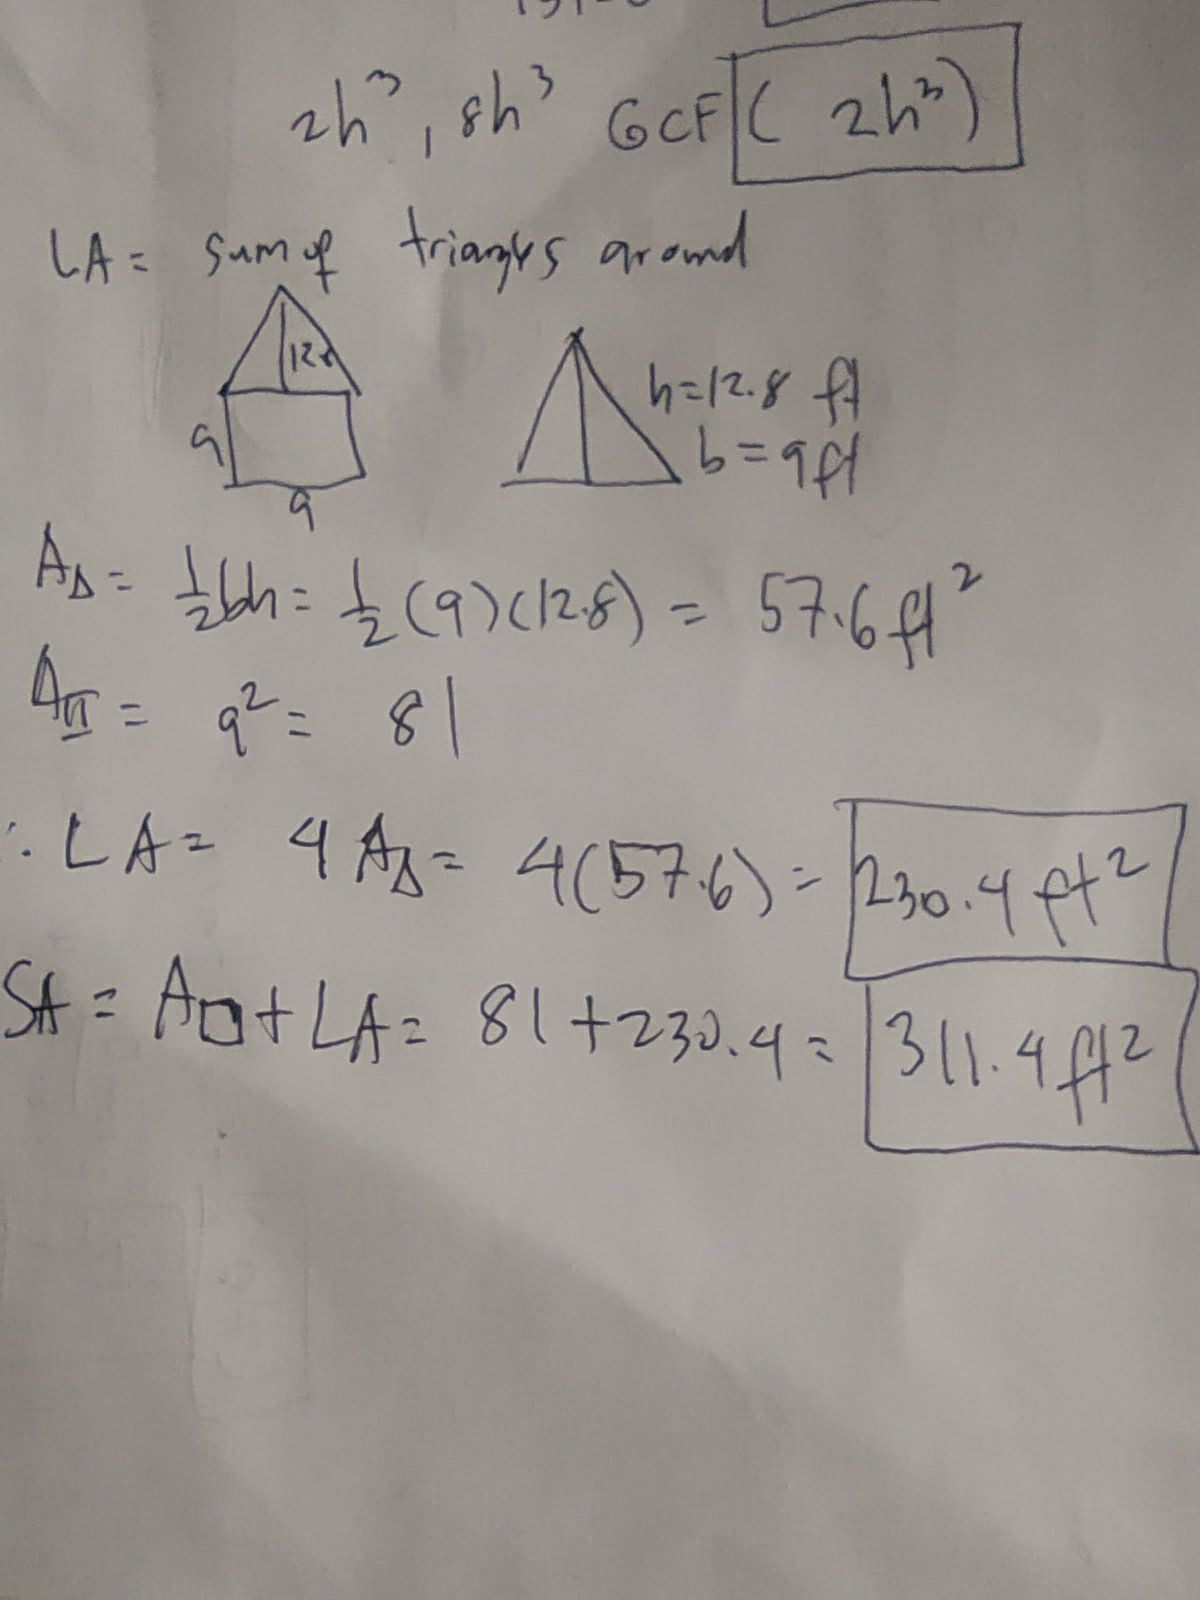 2h³, 8h³ GCF ( 2h³)
LA = sum of triangles around
12.
9
9
h=12.8 ft
b=9ft
A△ = 1/2bh = 1/2 (9)(12.8) = 57.6 ft²
A□ = 9² = 81
∴ LA = 4 A△ = 4(57.6) = 230.4 ft²
SA = A□ + LA = 81 + 230.4 = 311.4 ft²